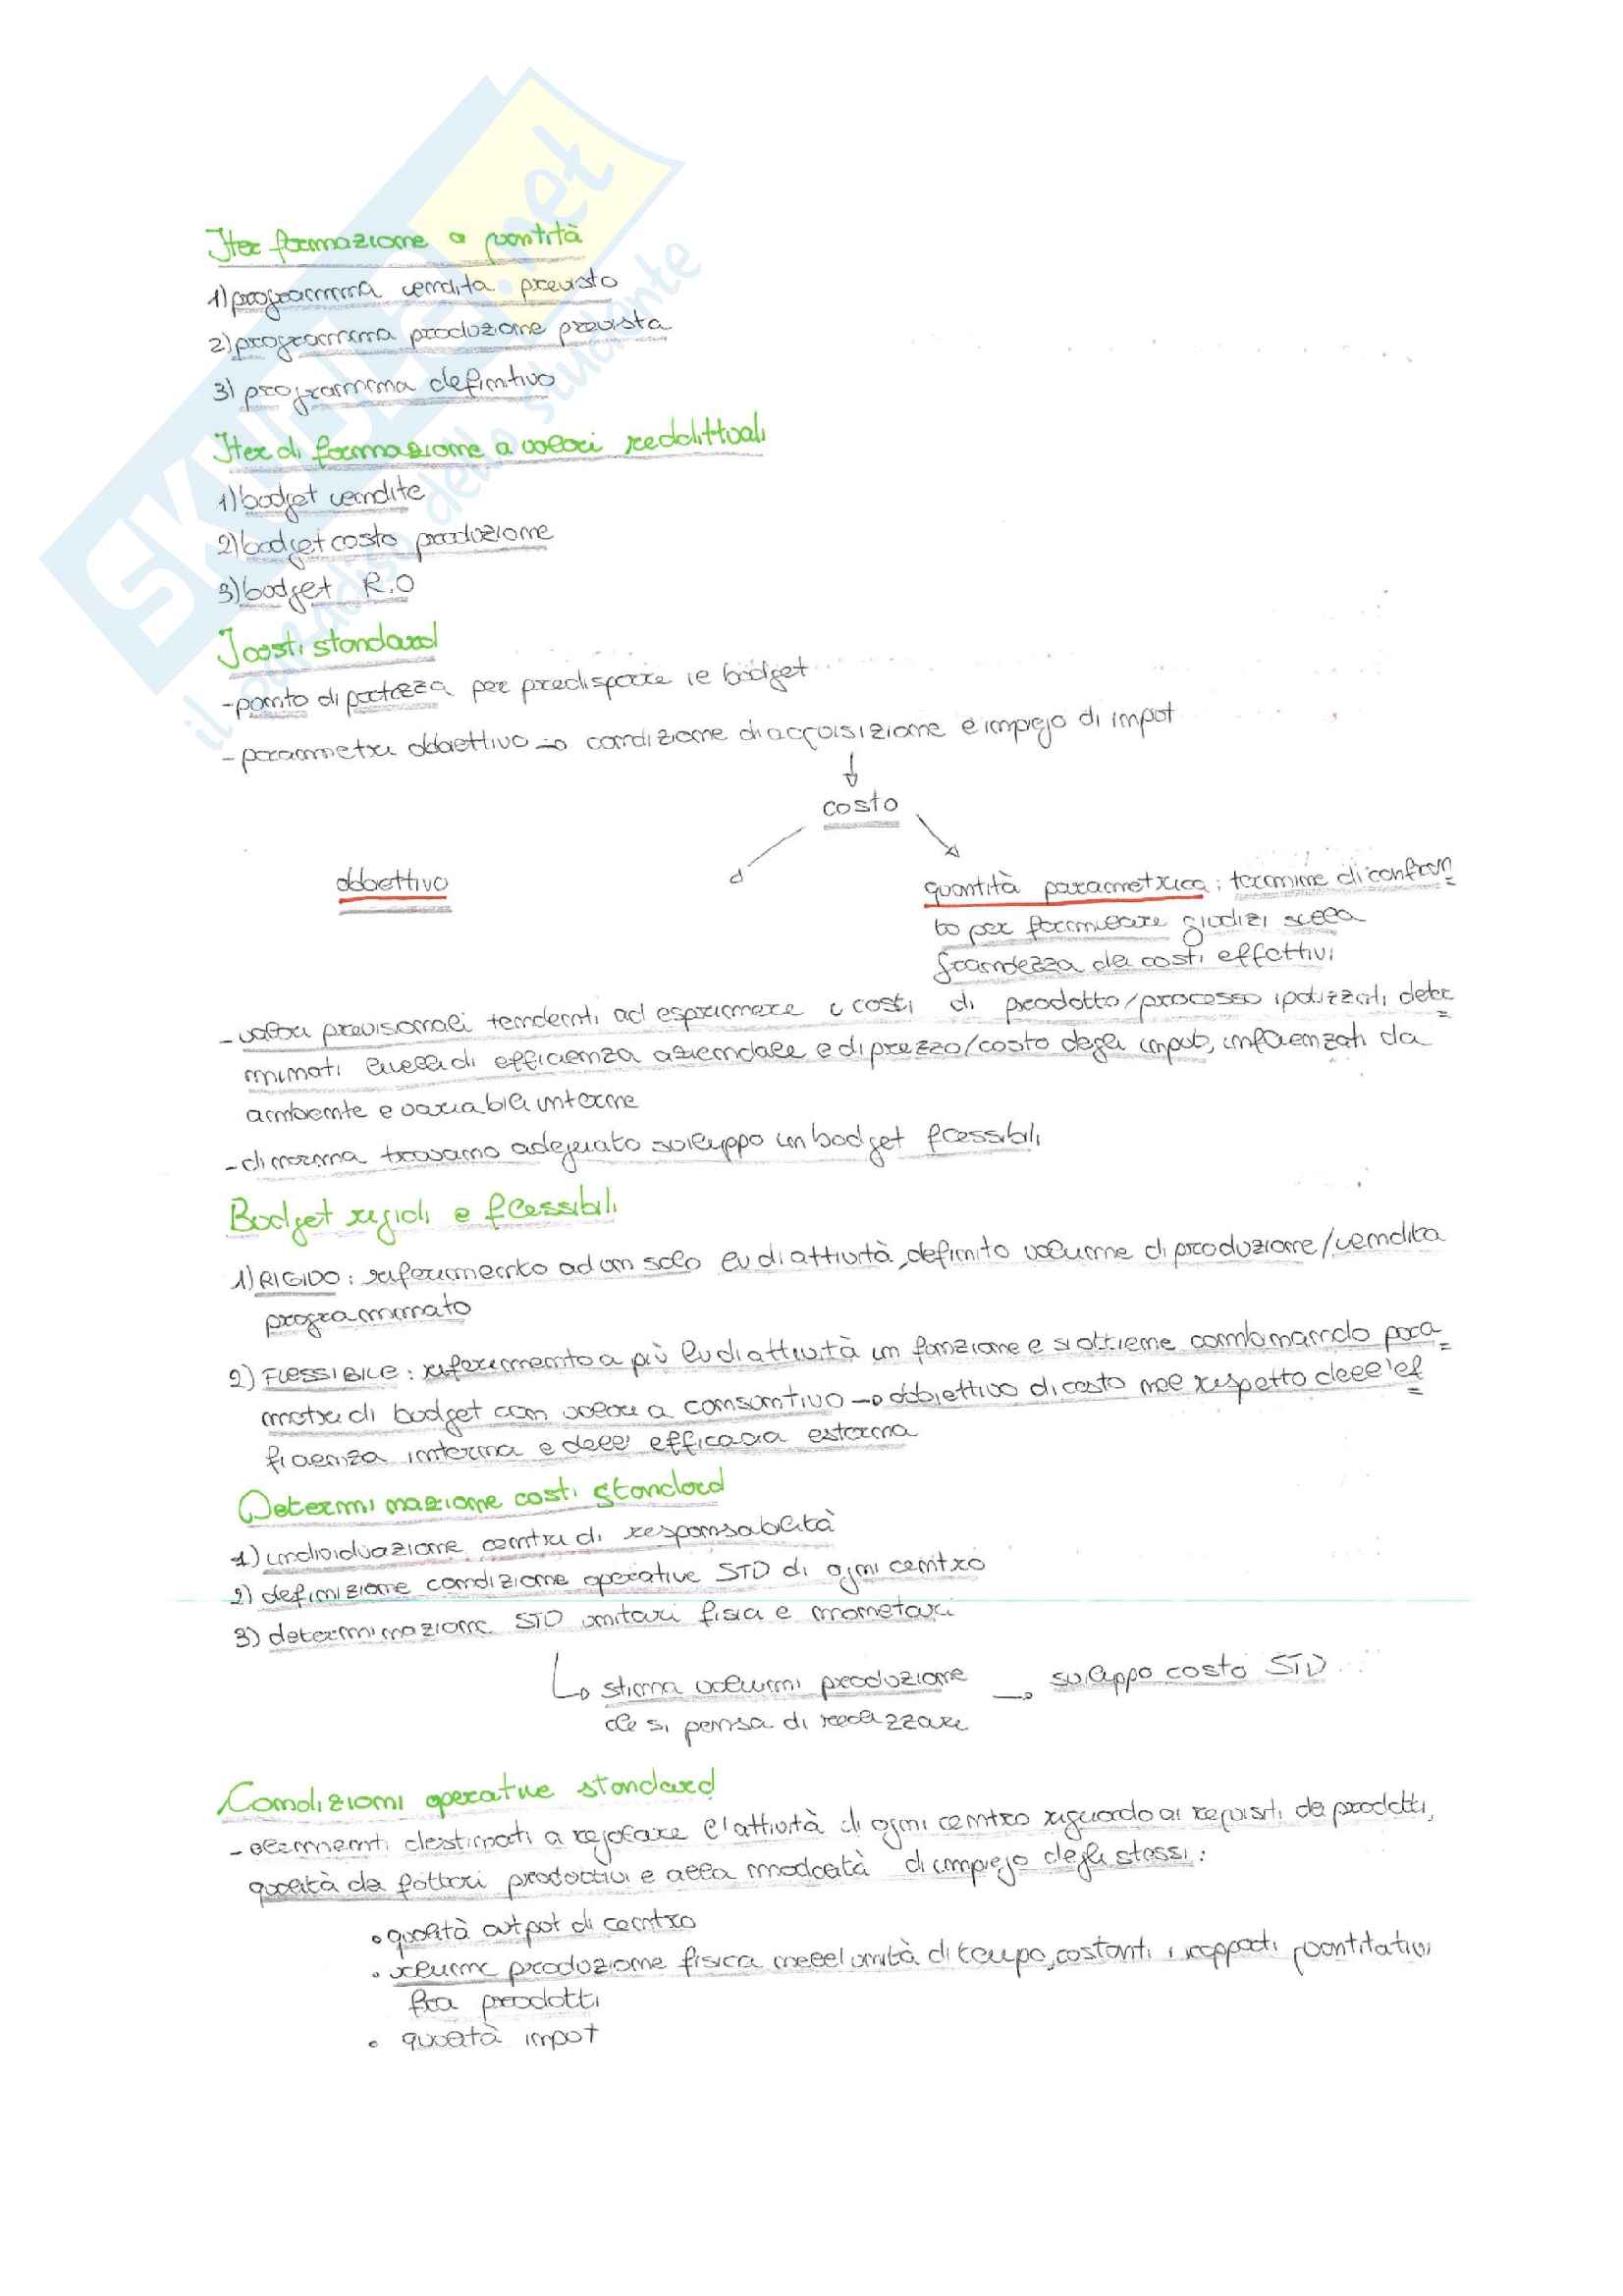 SKUOLA.net
il paradiso dello studente
Iter formazione a quantità
1) programma vendita previsto
2) programma produzione prevista
3) programma definitivo
Iter di formazione a valori reddittuali
1) budget vendite
2) budget costo produzione
3) budget R.O
I costi standard
- punto di partenza per predisporre il budget
- parametri obbiettivo → condizione di acquisizione e impiego di input
↓
costo
obbiettivo
quantità parametrica: termine di confron
to per formulare giudizi sulla
grandezza dei costi effettivi
- valori previsionali tendenti ad esprimere i costi di prodotto/processo ipotizzati deter
minati livelli di efficienza aziendale e di prezzo/costo degli input, influenzati da
ambiente e variabili interne
- di norma trovano adeguato sviluppo in budget flessibili
Budget rigidi e flessibili
1) RIGIDO: riferimento ad un solo liv di attività, definito volume di produzione/vendita
programmato
2) FLESSIBILE: riferimento a più liv di attività in funzione e si ottiene combinando para
metri di budget con valori a consuntivo → obbiettivo di costo nel rispetto dell'ef
ficienza interna e dell'efficacia esterna
Determinazione costi standard
1) individuazione centri di responsabilità
2) definizione condizione operative STD di ogni centro
3) determinazione STD unitari fisici e monetari
↳ stima volumi produzione → sviluppo costo STD
che si pensa di realizzare
Condizioni operative standard
- elementi destinati a regolare l'attività di ogni centro riguardo ai requisiti dei prodotti,
qualità dei fattori produttivi e alla modalità di impiego degli stessi:
• qualità output di centro
• volume produzione fisica nell'unità di tempo, costanti i rapporti quantitativi
fra prodotti
• qualità input